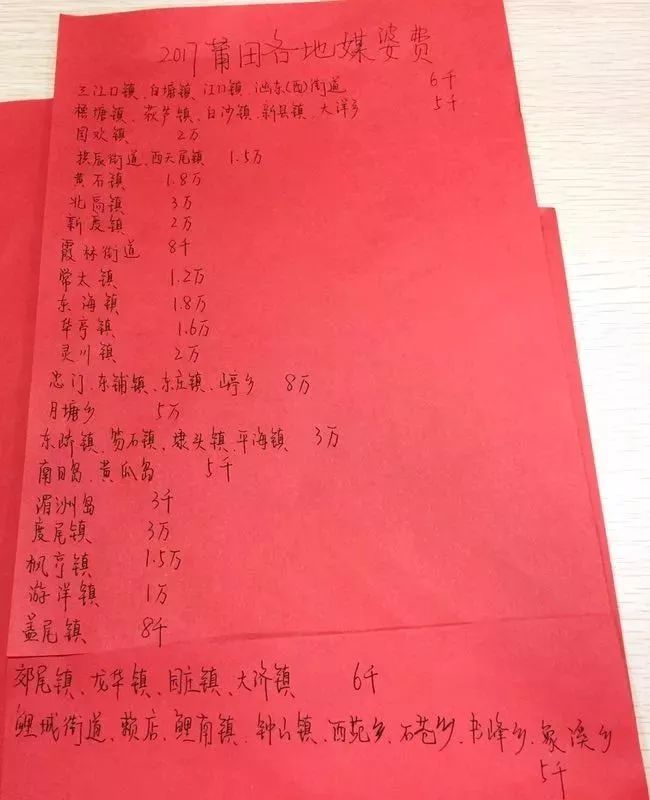 2017莆田各地媒婆费
三江口镇、白塘镇、江口镇、涵东(西)街道 6千
梧塘镇、萩芦镇、白沙镇、新县镇、大洋乡 5千
国欢镇 2万
拱辰街道、西天尾镇 1.5万
黄石镇 1.8万
北高镇 3万
新度镇 2万
霞林街道 8千
常太镇 1.2万
东海镇 1.8万
华亭镇 1.6万
灵川镇 2万
忠门、东铺镇、东庄镇、山亭乡 8万
月塘乡 5万
东峤镇、笏石镇、埭头镇、平海镇 3万
南日岛、黄瓜岛 5千
湄洲岛 3千
度尾镇 3万
枫亭镇 1.5万
游洋镇 1万
盖尾镇 8千
郊尾镇、龙华镇、园庄镇、大济镇 6千
鲤城街道、赖店、鲤南镇、钟山镇、西苑乡、石苍乡、书峰乡、象溪乡
5千